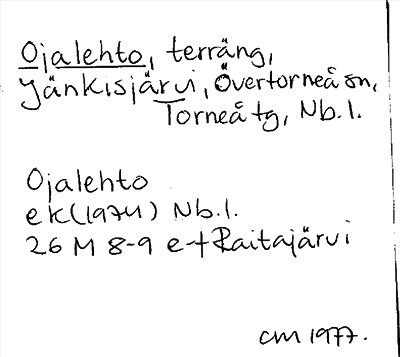 Ojalehto, terräng,
Jänkisjärvi, Övertorneå sn,
Torneå tg, Nb.l.
Ojalehto
ek(1974) Nb.l.
26 M 8-9 e-f Raitajärvi
CM 1977.